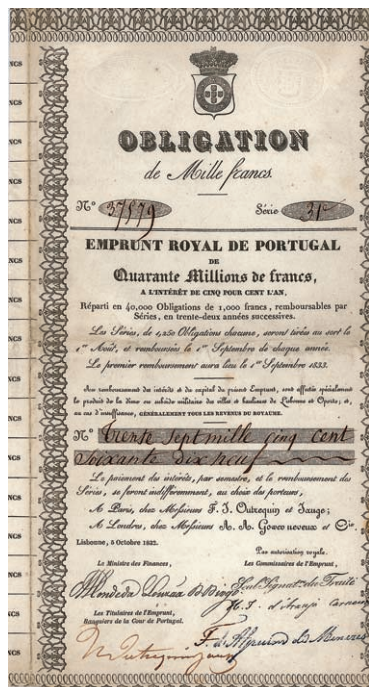 OBLIGATION
de Mille francs.
Nº 37579 Série 31e
EMPRUNT ROYAL DE PORTUGAL
DE
Quarante Millions de francs,
A L'INTÉRÊT DE CINQ POUR CENT L'AN,
Réparti en 40,000 Obligations de 1,000 francs, remboursables par
Séries, en trente-deux années successives.
Les Séries, de 1,250 Obligations chacune, seront tirées au sort le
1er Août, et remboursées le 1er Septembre de chaque année.
Le premier remboursement aura lieu le 1er Septembre 1833.
Au remboursement des intérêts et du capital du présent Emprunt, sont affectés spécialement
le produit de la dîme en subside militaire des villes et banlieues de Lisbonne et Oporto; et,
au cas d'insuffisance, GÉNÉRALEMENT TOUS LES REVENUS DU ROYAUME.
Nº trente sept mille cinq cent
Soixante Dix neuf
Le paiement des intérêts, par semestre, et le remboursement des
Séries, se feront indifféremment, au choix des porteurs,
A Paris, chez Messieurs F. J. Outrequin et Jauge;
A Londres, chez Messieurs A. A. Gower neveux et Cie.
Lisbonne, 5 Octobre 1832.
Par autorisation royale.
Le Ministre des Finances, Les Commissaires de l'Emprunt,
Les Titulaires de l'Emprunt,
Banquiers de la Cour de Portugal.
NCS
NCS
NCS
NCS
NCS
NCS
NCS
NCS
NCS
NCS
NCS
NCS
NCS